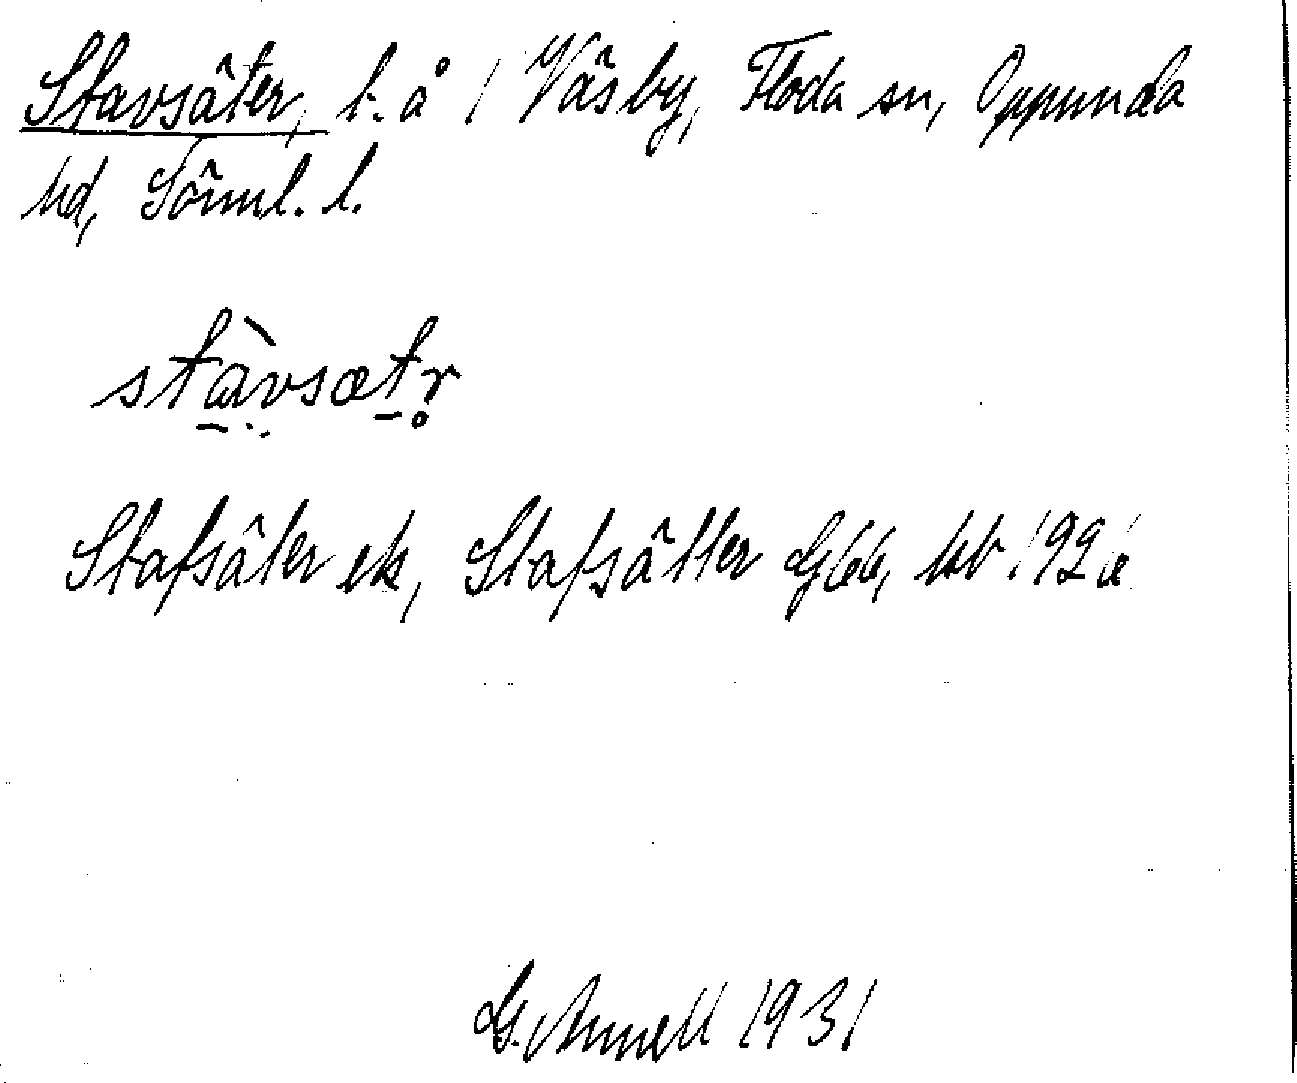 Stavsäter, t. å / Väsby, Floda sn, Oppunda
hd, Sörml. l.
stàvsætr̥
Stafsäter ek, Stafsätter G66, kb 1926
G. Annell 1931